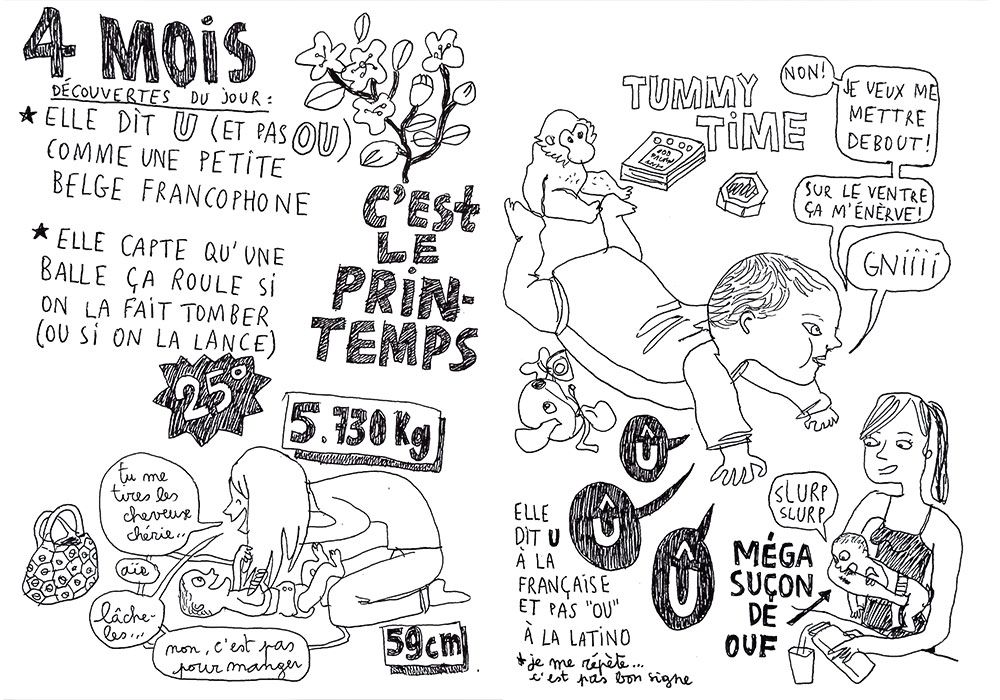 4 MOIS
DÉCOUVERTES DU JOUR :
* ELLE DIT U (ET PAS OU)
COMME UNE PETITE
BELGE FRANCOPHONE
* ELLE CAPTE QU'UNE
BALLE ÇA ROULE SI
ON LA FAIT TOMBER
(OU SI ON LA LANCE)
C'EST
LE
PRIN-
TEMPS
25°
5.730 Kg
tu me
tires les
cheveux
chérie..
aïe
lâche-
les...
non, c'est pas
pour manger
59cm
TUMMY
TIME
NON!
JE VEUX ME
METTRE
DEBOUT!
SUR LE VENTRE
ÇA M'ÉNÈRVE!
GNiiiii
Û
Û
Û
ELLE
DIT U
À LA
FRANÇAISE
ET PAS "OU"
À LA LATINO
* je me répète...
c'est pas bon signe
SLURP
SLURP
MÉGA
SUÇON
DE
OUF